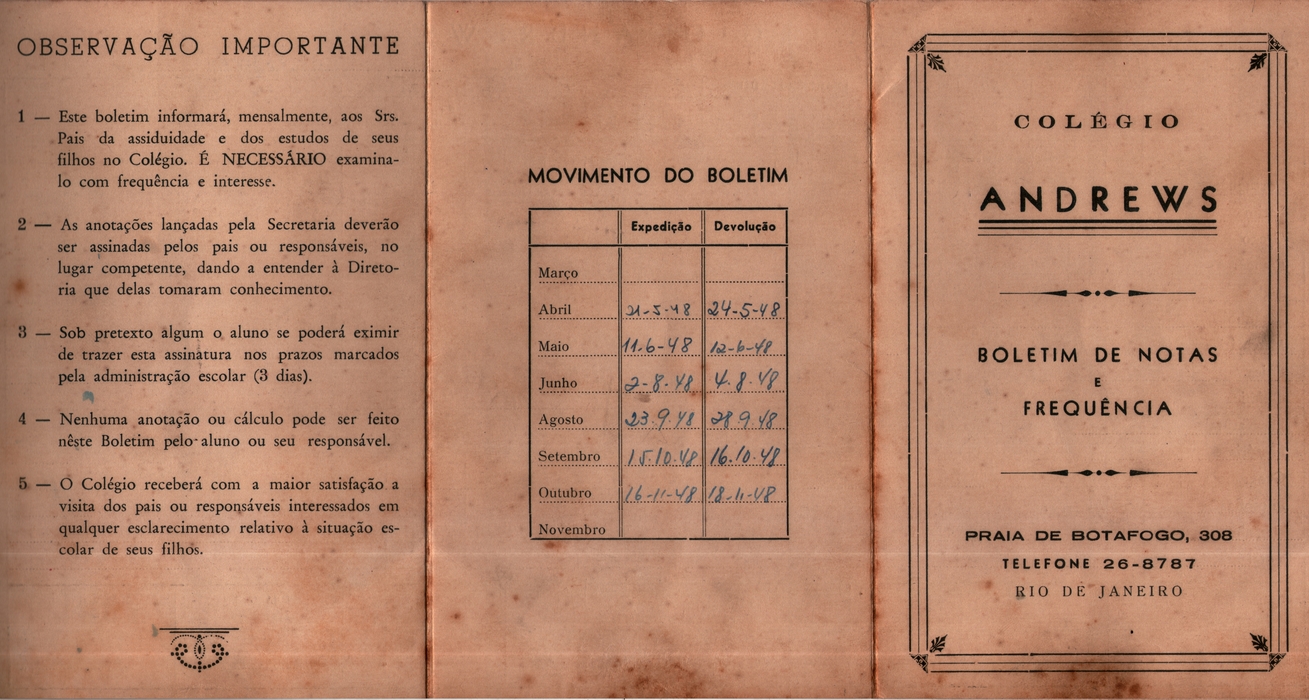 OBSERVAÇÃO IMPORTANTE
1 — Este boletim informará, mensalmente, aos Srs.
Pais da assiduidade e dos estudos de seus
filhos no Colégio. É NECESSÁRIO examina-
lo com frequência e interesse.
2 — As anotações lançadas pela Secretaria deverão
ser assinadas pelos pais ou responsáveis, no
lugar competente, dando a entender à Direto-
ria que delas tomaram conhecimento.
3 — Sob pretexto algum o aluno se poderá eximir
de trazer esta assinatura nos prazos marcados
pela administração escolar (3 dias).
4 — Nenhuma anotação ou cálculo pode ser feito
nêste Boletim pelo aluno ou seu responsável.
5 — O Colégio receberá com a maior satisfação a
visita dos pais ou responsáveis interessados em
qualquer esclarecimento relativo à situação es-
colar de seus filhos.
MOVIMENTO DO BOLETIM
Expedição Devolução
Março
Abril 21-5-48 24-5-48
Maio 11-6-48 12-6-48
Junho 2-8-48 4.8.48
Agosto 23.9.48 28 9.48
Setembro 15.10.48 16.10.48
Outubro 16-11-48 18-11-48
Novembro
COLÉGIO
ANDREWS
BOLETIM DE NOTAS
E
FREQUÊNCIA
PRAIA DE BOTAFOGO, 308
TELEFONE 26-8787
RIO DE JANEIRO